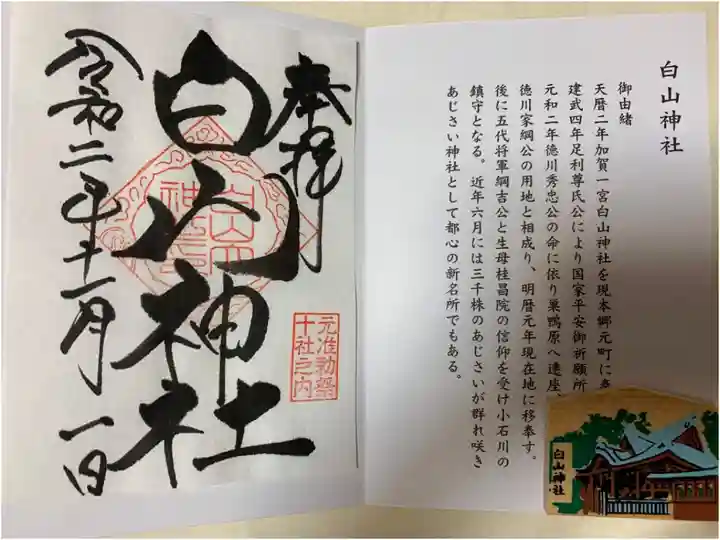 奉拝
白山神社
令和二年十一月一日
元准勅祭
十社之内
白山神社
御由緒
天暦二年加賀一宮白山神社を現本郷元町に
建武四年足利尊氏公により国家平安御祈願所
元和二年徳川秀忠公の命に依り巣鴨原へ遷座、
徳川家綱公の用地と相成り、明暦元年現在地に移奉す。
後に五代将軍綱吉公と生母桂昌院の信仰を受け小石川の
鎮守となる。近年六月には三千株のあじさいが群れ咲き
あじさい神社として都心の新名所でもある。
白山神社